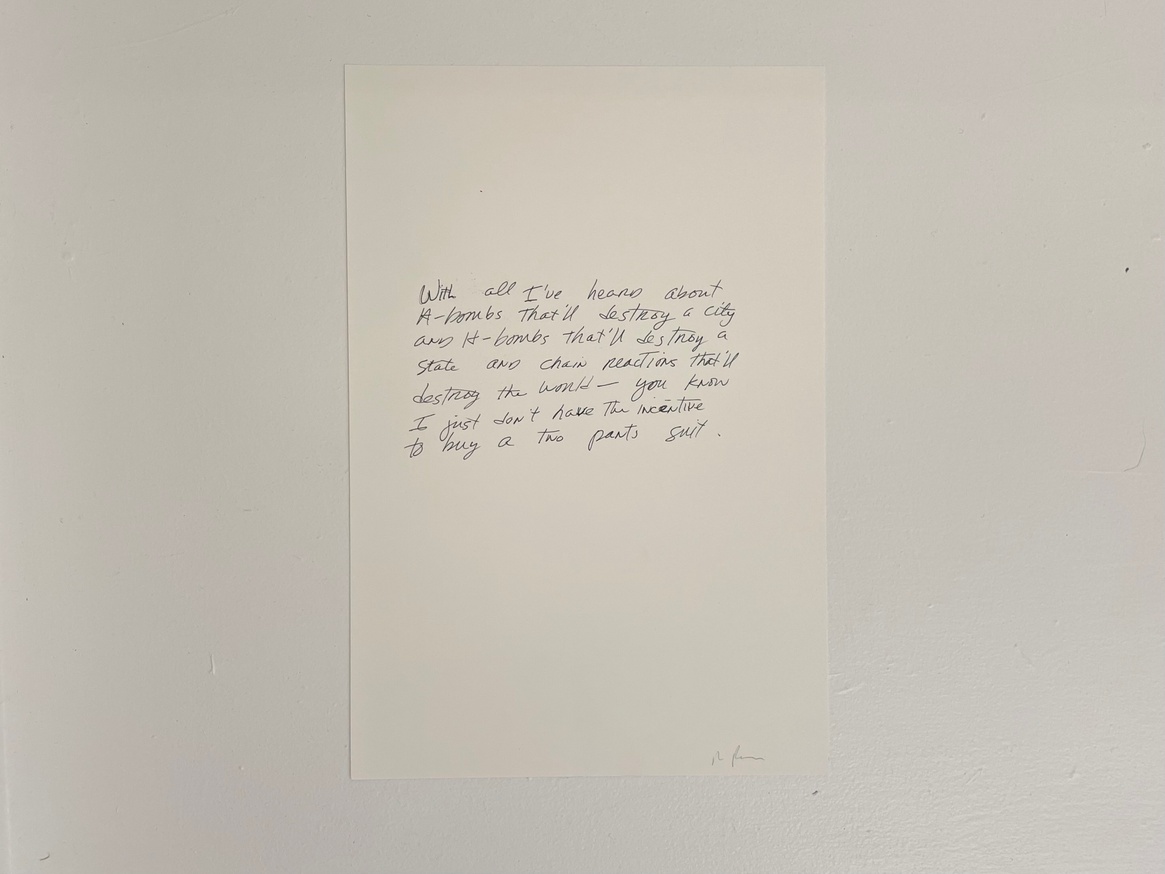 With all I've heard about
A-bombs that'll destroy a city
and H-bombs that'll destroy a
state and chain reactions that'll
destroy the world — you know
I just don't have the incentive
to buy a two pants suit.